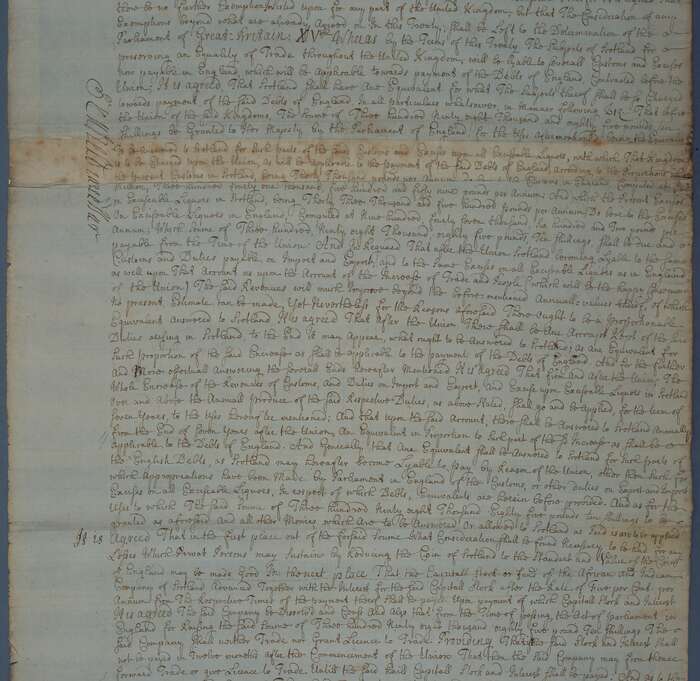 there be no further Exemptions insisted upon for any part of the United Kingdom, but that the Consideration of any
Exemptions beyond what are already Agreed on In this Treaty, shall be Left to the Determination of the
Parliament of Great-Britain. XVth Wheras by the Terms of this Treaty The Subjects of Scotland for
preserving an Equality of Trade throughout the United Kingdom, will be lyable to severall Customs and Excises
now payable in England, which will be applicable towards payment of the Debts of England, Contracted before the
Union; It is agreed That Scotland shall have ane Equivalent for what The Subjects therof shall be so Charged
towards payment of the said Debts of England In all particulars whatsoever, in manner following Viz. That before
the Union of the said Kingdoms, The soume of Three hundred ninty eight Thousand and eighty five pounds, ten
shillings be Granted to Her Majesty by the Parliament of England for the Uses aftermentioned, being the Equivalent
to be answered to Scotland for such parts of the said Customs and Excises upon all exciseable Liquors, with which That Kingdom
is to be Charged upon the Union, as will be applicable to the payment of the said Debts of England, According to the proportions
the present Customs in Scotland, being Thirty Thousand pounds per annum
Million, Three hundred fourty one thousand, five hundred and fifty nine pounds per Annum; And which the present Excises
on Exciseable Liquors in Scotland, being Thirty Three Thousand and five hundred pounds per Annum, Do bear to the Excises
on Exciseable Liquors in England, Computed at Nine hundred, fourty seven thousand, six hundred and Two pounds per
Annum; Which soume of Three hundred, Ninty eight Thousand, eighty five pounds, Ten shillings, shall be due and
payable from the Time of the Union: And In Reguard That after the Union Scotland becoming Lyable to the same
Customs and Duties payable on Import and Export, and to the same Excises on all Exciseable Liquors as in England
as well upon That Account as upon the Account of the Increase of Trade and People (which will be the happy Consequence
of the Union) The said Revenues will much Improve beyond the before-mentioned Annuall values therof, of which
no present Estimate can be made, Yet Nevertheless for the Reasons aforesaid There ought to be a proportionable
Equivalent Answered to Scotland It is agreed That After the Union There shall be Ane Accompt Kept of the said
Duties arising in Scotland, to the End It may Appear, what ought to be Answered to Scotland, as an Equivalent for
such proportion of the said Encrease as shall be applicable to the payment of the Debts of England. And for the further
and More effectual Answering the severall Ends hereafter Mentioned It is agreed That from and after the Union The
whole Encrease of the Revenues of Customs, and Duties on Import and Export, and Excises upon Exciseable Liquors in Scotland
over and Above the Annuall produce of the said Respective Duties, as above stated, shall go and be Applyed, for the term of
seven years, to the Uses hereafter mentioned; And that upon the said Account, there shall be Answered to Scotland Annually
from the End of seven years after the Union, An Equivalent in Proportion to such part of the sd Increase as shall be
applicable to the Debts of England. And Generally, that Ane Equivalent shall be Answered to Scotland for such parts of
the English Debts, as Scotland may hereafter become Lyable to pay by Reason of the Union, other then such for
which Appropriations have been Made by Parliament in England of the Customs, or other duties on Export and Import
Excises on all Exciseable Liquors, In respect of which Debts, Equivalents are herein before provided. And as for the
Uses to which The said soume of Three hundred Ninty eight thousand Eighty five pounds ten shillings to be
granted as aforesaid And all other Monies which Are to be Answered or Allowed to Scotland as said is are to be applied
It is Agreed That in the first place out of the forsaid soume What Consideration shall be found Necessary to be had for any
Losses Which Privat Persons may sustain by Reducing the Coin of Scotland to the Standart and Value of the Coin
of England may be made Good In the next place That the Capitall stock or fund of the African and Indian
Company of Scotland Advanced Together with the Interest for the said Capitall stock after the Rate of Five per Cent. per
Annum from The Respective Times of the payment therof shall be payed Upon payment of which Capitall stock and Interest
It is Agreed The said Company be Dissolved and Cease And Also that from the Time of passing the Act of Parliament in
England for Raising the said soume of Three hundred Ninty eight thousand eighty five pound Ten shillings The
said Company shall neither Trade nor Grant Licence to Trade Providing That If the said Stock and Interest shall
not be payed in Twelve months after the Commencement of the Union That then the said Company may from thence
forward Trade or give Licence to Trade Untill the said haill Capitall stock and Interest shall be payed. And as to